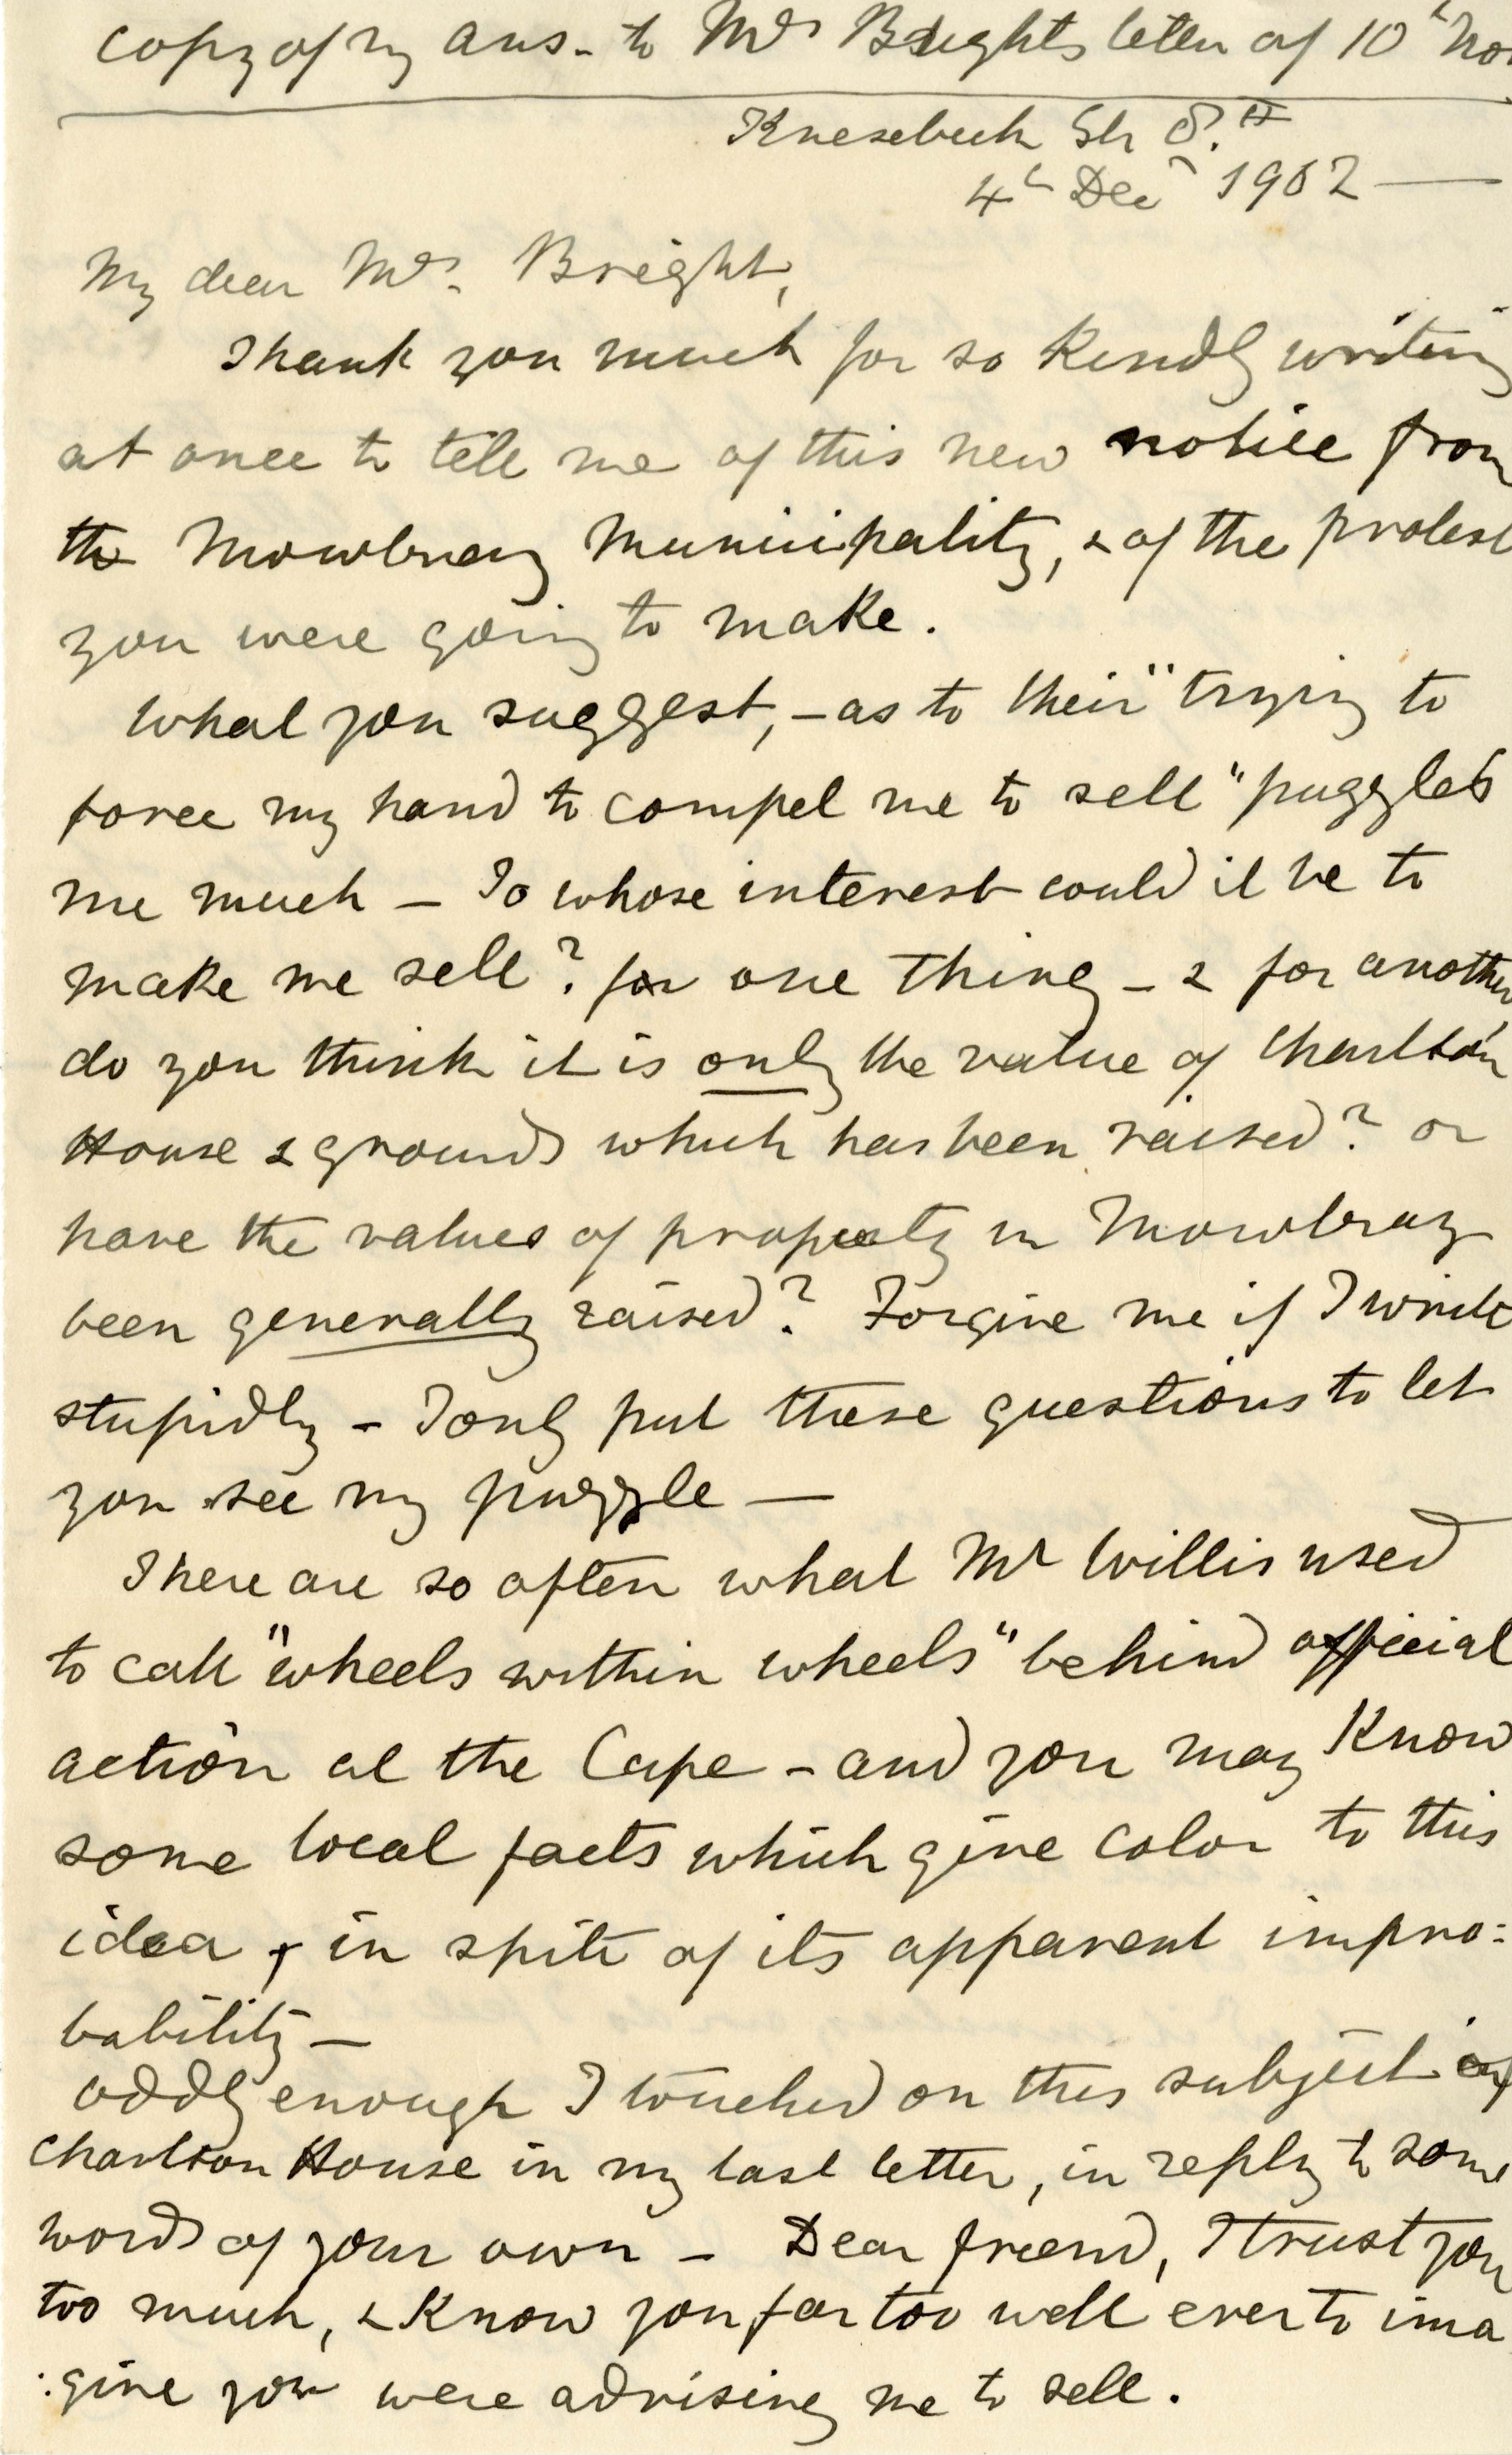 copy of my ans - to Mrs Brights letter of 10th Nov
Knesebeck Str 8. II
4th Decr 1902 —
My dear Mrs. Bright,
Thank you much for so kindly writing
at once to tell me of this new notice from
the Mowbray Municipality, & of the protest
you were going to make.
What you suggest, - as to their "trying to
force my hand to compel me to sell" puzzles
me much - To whose interest could it be to
make me sell? for one thing - & for another
do you think it is only the value of Charlton
House & grounds which has been raised? or
have the values of property in Mowbray
been generally raised? Forgive me if I write
stupidly - I only put these questions to let
you see my puzzle —
There are so often what Mr Willis used
to call "wheels within wheels" behind official
action at the Cape - and you may know
some local facts which give color to this
idea, in spite of its apparent impro:
bability —
Oddly enough I touched on this subject of
Charlton House in my last letter, in reply to some
words of your own - Dear friend, I trust you
too much, & know you far too well ever to ima
:gine you were advising me to sell.